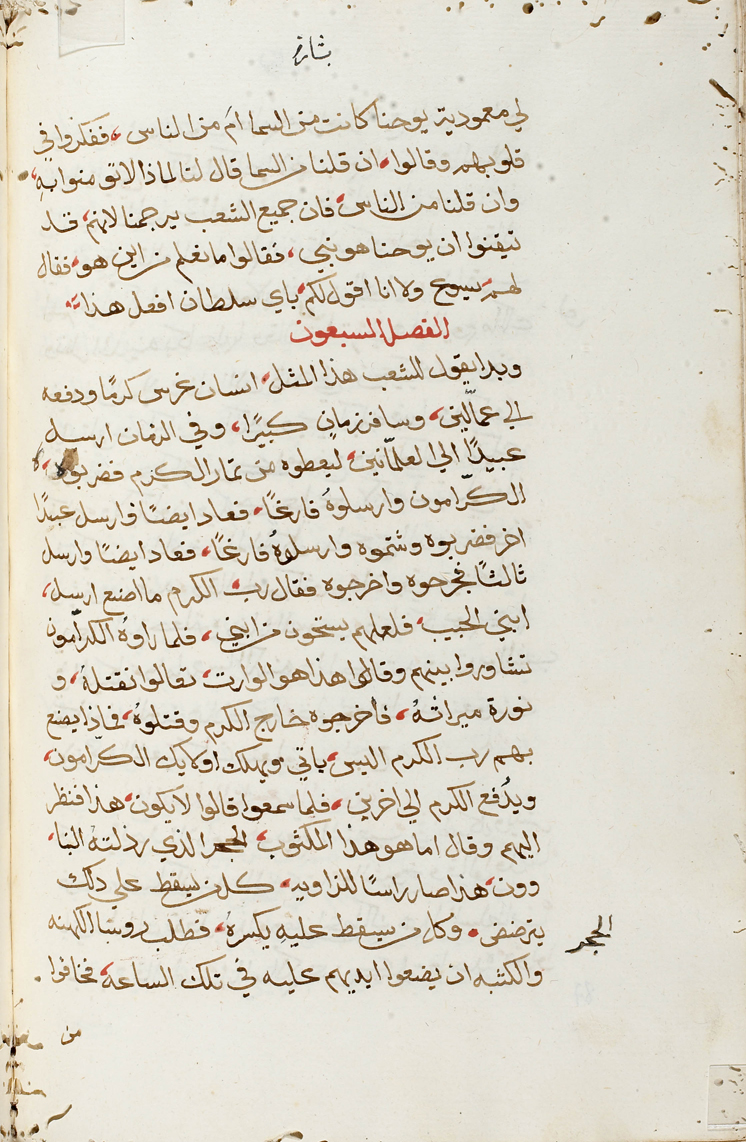 بشارة
لي معمودية يوحنا كانت من السما ام من الناس، ففكروا في
قلوبهم وقالوا، ان قلنا من السما قال لنا لماذا لا تومنوا به،
وان قلنا من الناس، فان جميع الشعب يرجمنا لانهم، قد
تيقنوا ان يوحنا هو نبي، فقالوا ما نعلم من اين هو، فقال
لهم يسوع ولا انا اقول لكم، باي سلطان افعل هذا،
الفصل السبعون
وبدا يقول للشعب هذا المثل، انسان غرس كرمًا ودفعه
الي عمالين، وسافر زمان كبيرًا، وفي الزمان ارسل
عبيدًا الي العمالين، ليعطوه من ثمار الكرم فضربوه،
الكرّامون وارسلوهُ فارغًا، فعاد ايضًا وارسل عبدًا
اخر فضربوه وشتموه وارسلوهُ فارغًا، فعاد ايضًا وارسل
ثالثًا فجرحوه واخرجوه فقال رب الكرم ما اصنع ارسل،
ابني الحبيب، فلعلهم يستحون من ابني، فلما راوهُ الكرامون
تشاوروا بينهم وقالوا هذا هو الوارث، تعالوا نقتلهُ، و
نورة ميراثهُ، فأخرجوه خارج الكرم وقتلوهُ، فماذا يصنع
بهم رب الكرم اليس، ياتي ويهلك اولايك الكرامون،
ويدفع الكرم الي اخرين، فلما سمعوا قالوا لا يكون، هذا فنظر
اليهم وقال اما هو هذا المكتوب، الحجر الذي رذلته البنا،
وون، هذا صار راسًا للزاويه، كل من يسقط علي ذلك
يترضض، وكل من يسقط عليه يكسرهُ، فطلب روسا الكهنه
الحجر
والكتبه ان يضعوا ايديهم عليه في تلك الساعة، فخافوا
من